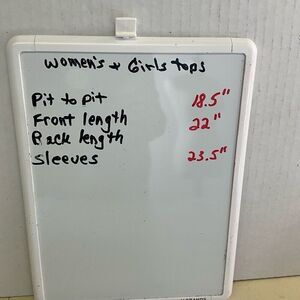 Women's + Girls tops
Pit to pit 18.5"
Front length 22"
Back length
Sleeves 23.5"